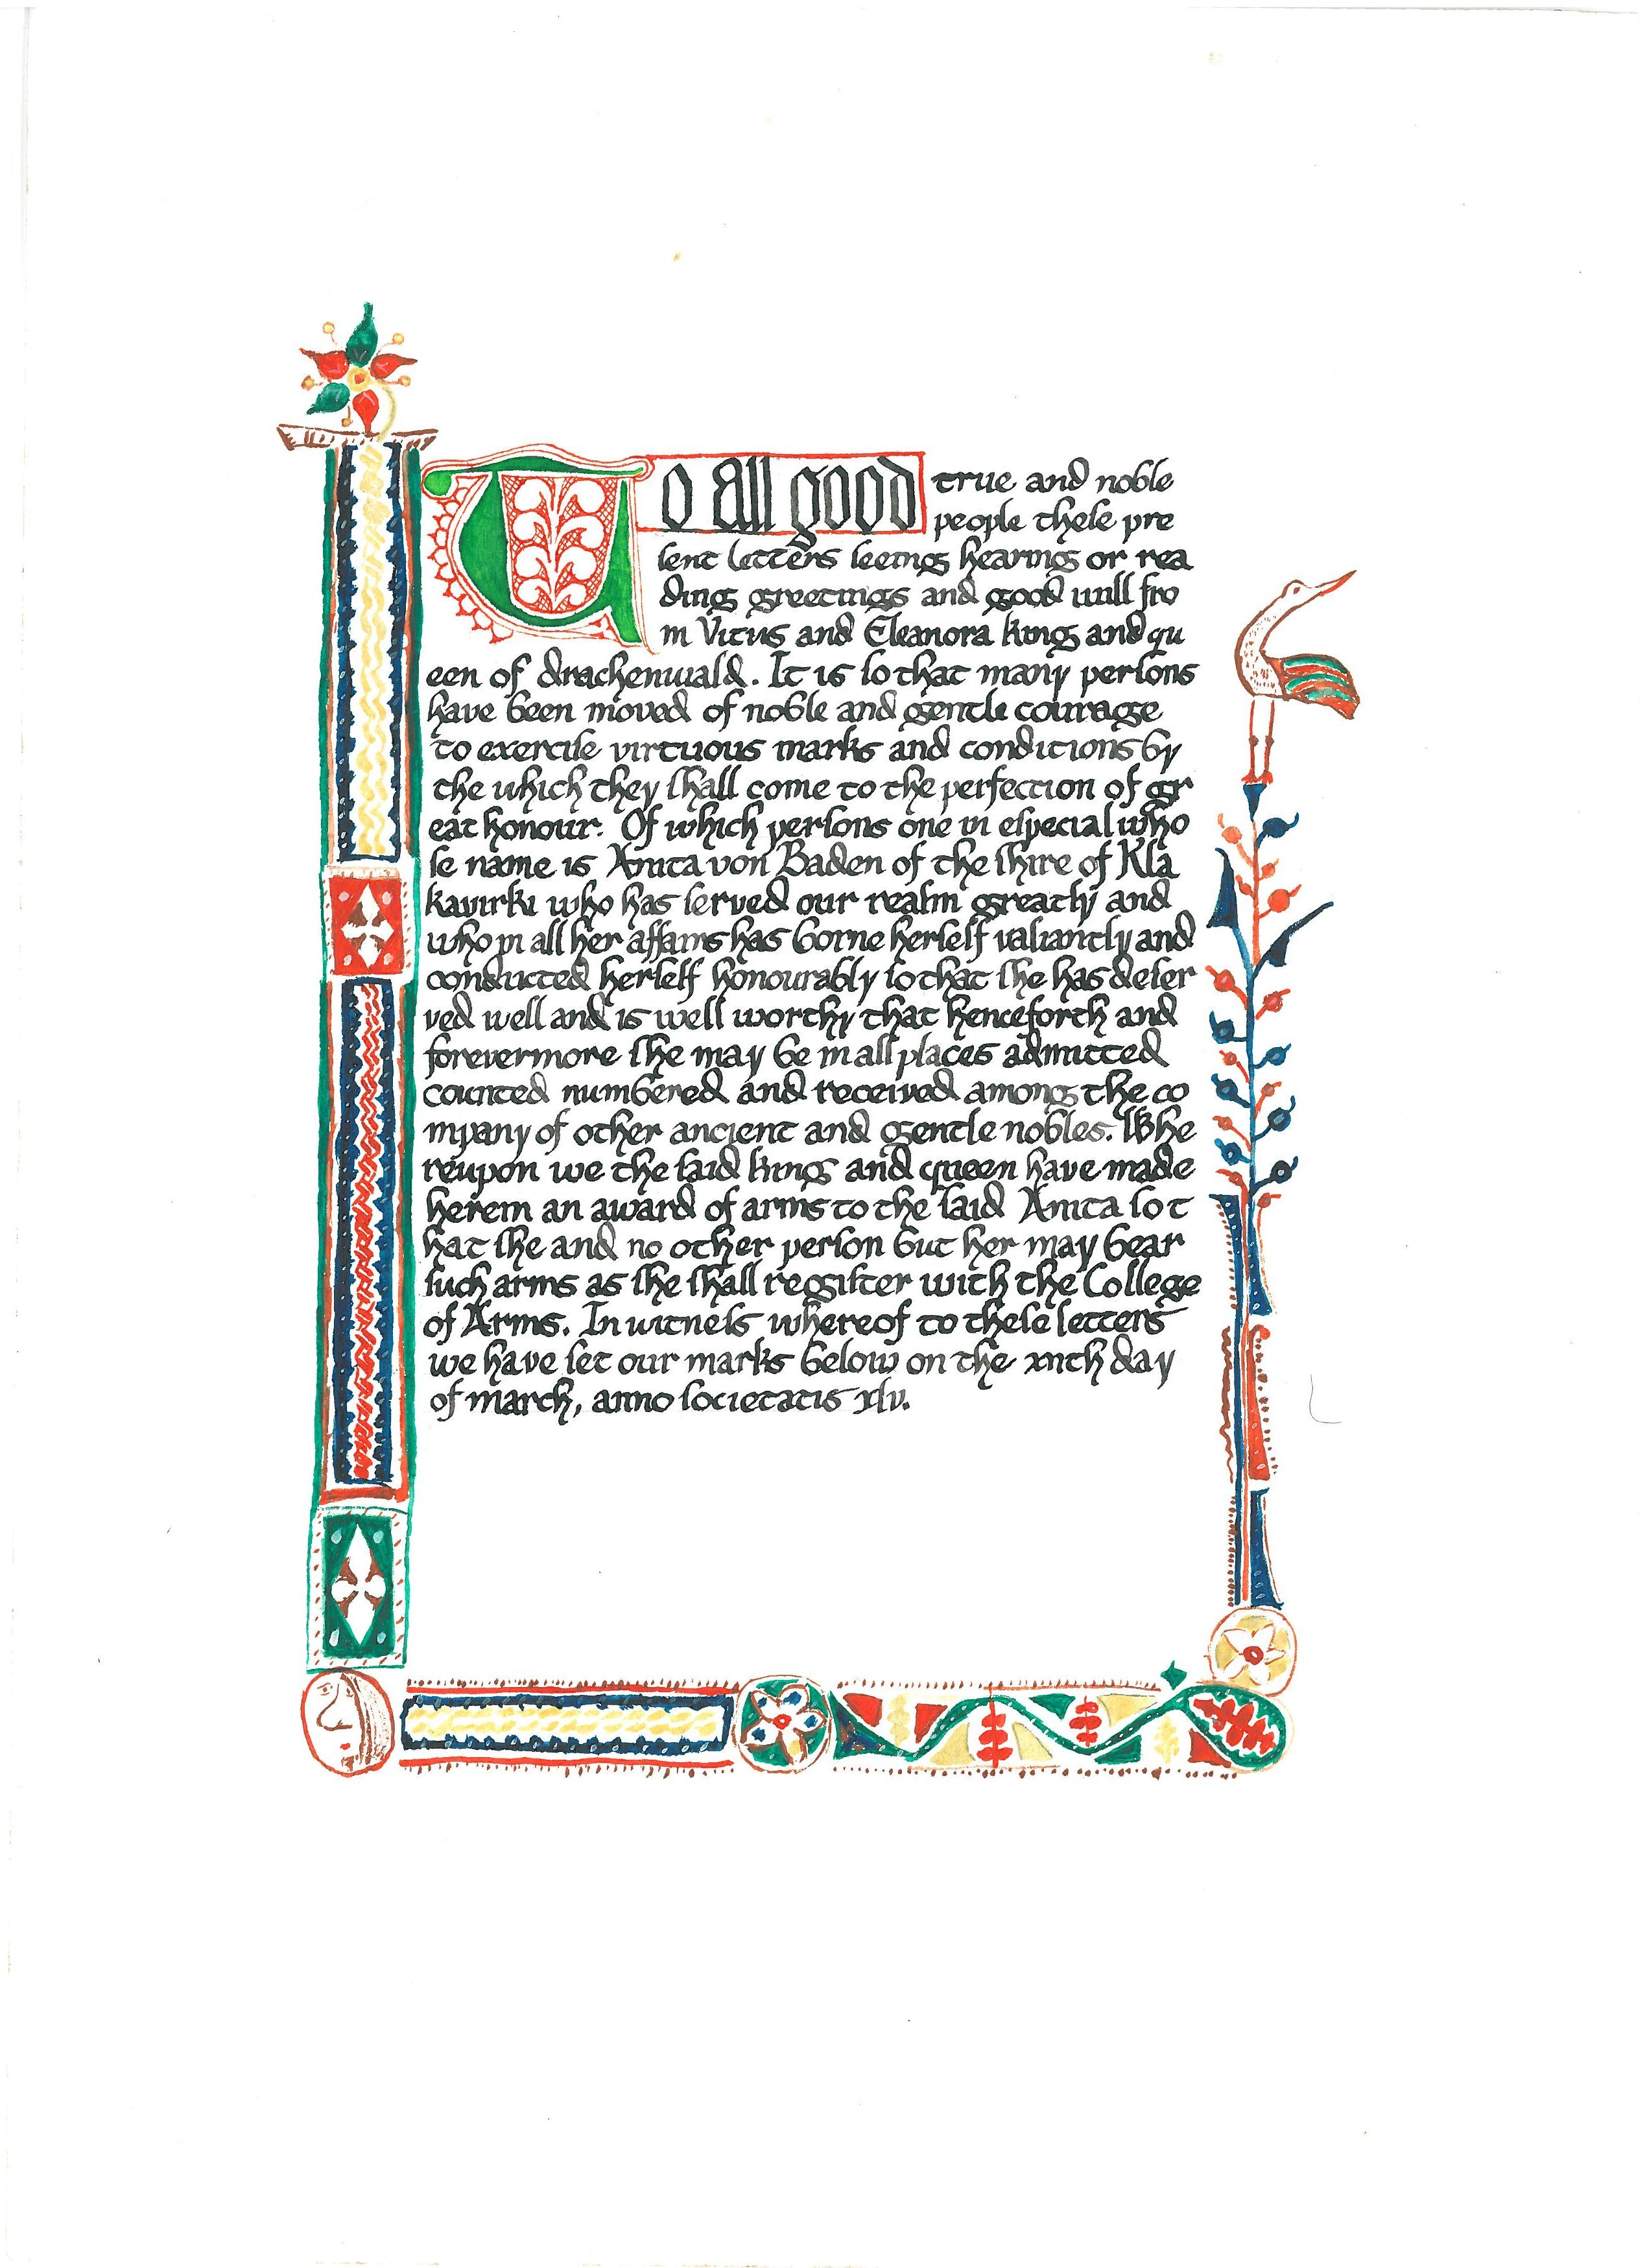 To all good true and noble
people theſe pre
ſent letters ſeeing hearing or rea
ding greetings and good will fro
m Vitus and Eleanora king and qu
een of drachenwald. It is ſo that many perſons
have been moved of noble and gentle courage
to exerciſe virtuous marks and conditions by
the which they ſhall come to the perfection of gr
eat honour. Of which perſons one in eſpecial who
ſe name is Anita von Baden of the ſhire of Kla
kavirki who has ſerved our realm greatly and
who in all her affairs has borne herſelf valiantly and
conducted herſelf honourably ſo that ſhe has deſer
ved well and is well worthy that henceforth and
forevermore ſhe may be in all places admitted
counted numbered and received among the co
mpany of other ancient and gentle nobles. Whe
reupon we the ſaid king and queen have made
herein an award of arms to the ſaid Anita ſo t
hat ſhe and no other perſon but her may bear
ſuch arms as ſhe ſhall regiſter with the College
of Arms. In witneſs whereof to theſe letters
we have ſet our marks below on the xiith day
of march, anno ſocietatis xlv.